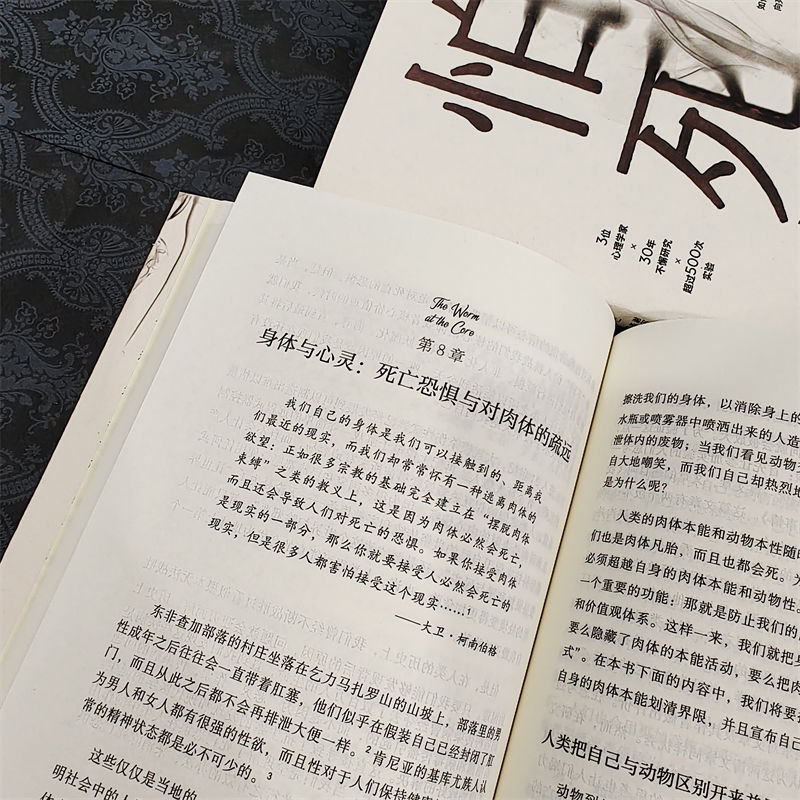 怕死
3位
心理学家
×
30年
不懈研究
×
超过500次
实验
The Worm
at the Core
第8章
身体与心灵：死亡恐惧与对肉体的疏远
我们自己的身体是我们可以接触到的、距离我
们最近的现实，而我们却常常怀有一种逃离肉体的
欲望：正如很多宗教的基础完全建立在“摆脱肉体
束缚”之类的教义上，这是因为肉体必然会死亡，
而且还会导致人们对死亡的恐惧。如果你接受肉体
是现实的一部分，那么你就要接受人必然会死亡的
现实，但是很多人都害怕接受这个现实……¹
——大卫·柯南伯格
东非查加部落的村庄坐落在乞力马扎罗山的山坡上，部落里的男
性成年之后往往会一直带着肛塞，他们似乎在假装自己已经封闭了肛
门，而且从此之后都不会再排泄大便一样。²肯尼亚的基库尤族人认
为男人和女人都有很强的性欲，而且性对于人们保持健康
常的精神状态都是必不可少的。³
这些仅仅是当地的
明社会中的人
擦洗我们的身体，以消除身上的
水瓶或喷雾器中喷洒出来的人造
泄体内的废物；当我们看见动物
自大地嘲笑，而我们自己却热烈地
是为什么呢？
人类的肉体本能和动物本性随
们也是肉体凡胎，而且也都会死。为
必须超越自身的肉体本能和动物性
一个重要的功能：那就是防止我们的
和价值观体系。这样一来，我们就把
要么隐藏了肉体的本能活动，要么把肉
式”。在本书下面的内容中，我们将要
自身的肉体本能划清界限，并且宣布自己
人类把自己与动物区别开来并